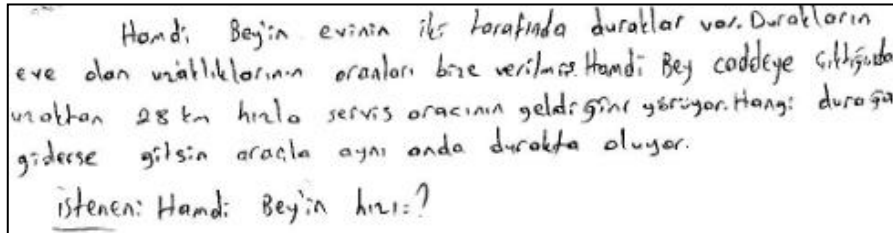 Hamdi Bey'in evinin iki tarafında duraklar var. Durakların
eve olan uzaklıklarının oranları bize verilmiş. Hamdi Bey caddeye çıktığında
uzaktan 28 km hızla servis aracının geldiğini görüyor. Hangi durağa
giderse gitsin araçla aynı anda durakta oluyor.
istenen: Hamdi Bey'in hızı=?